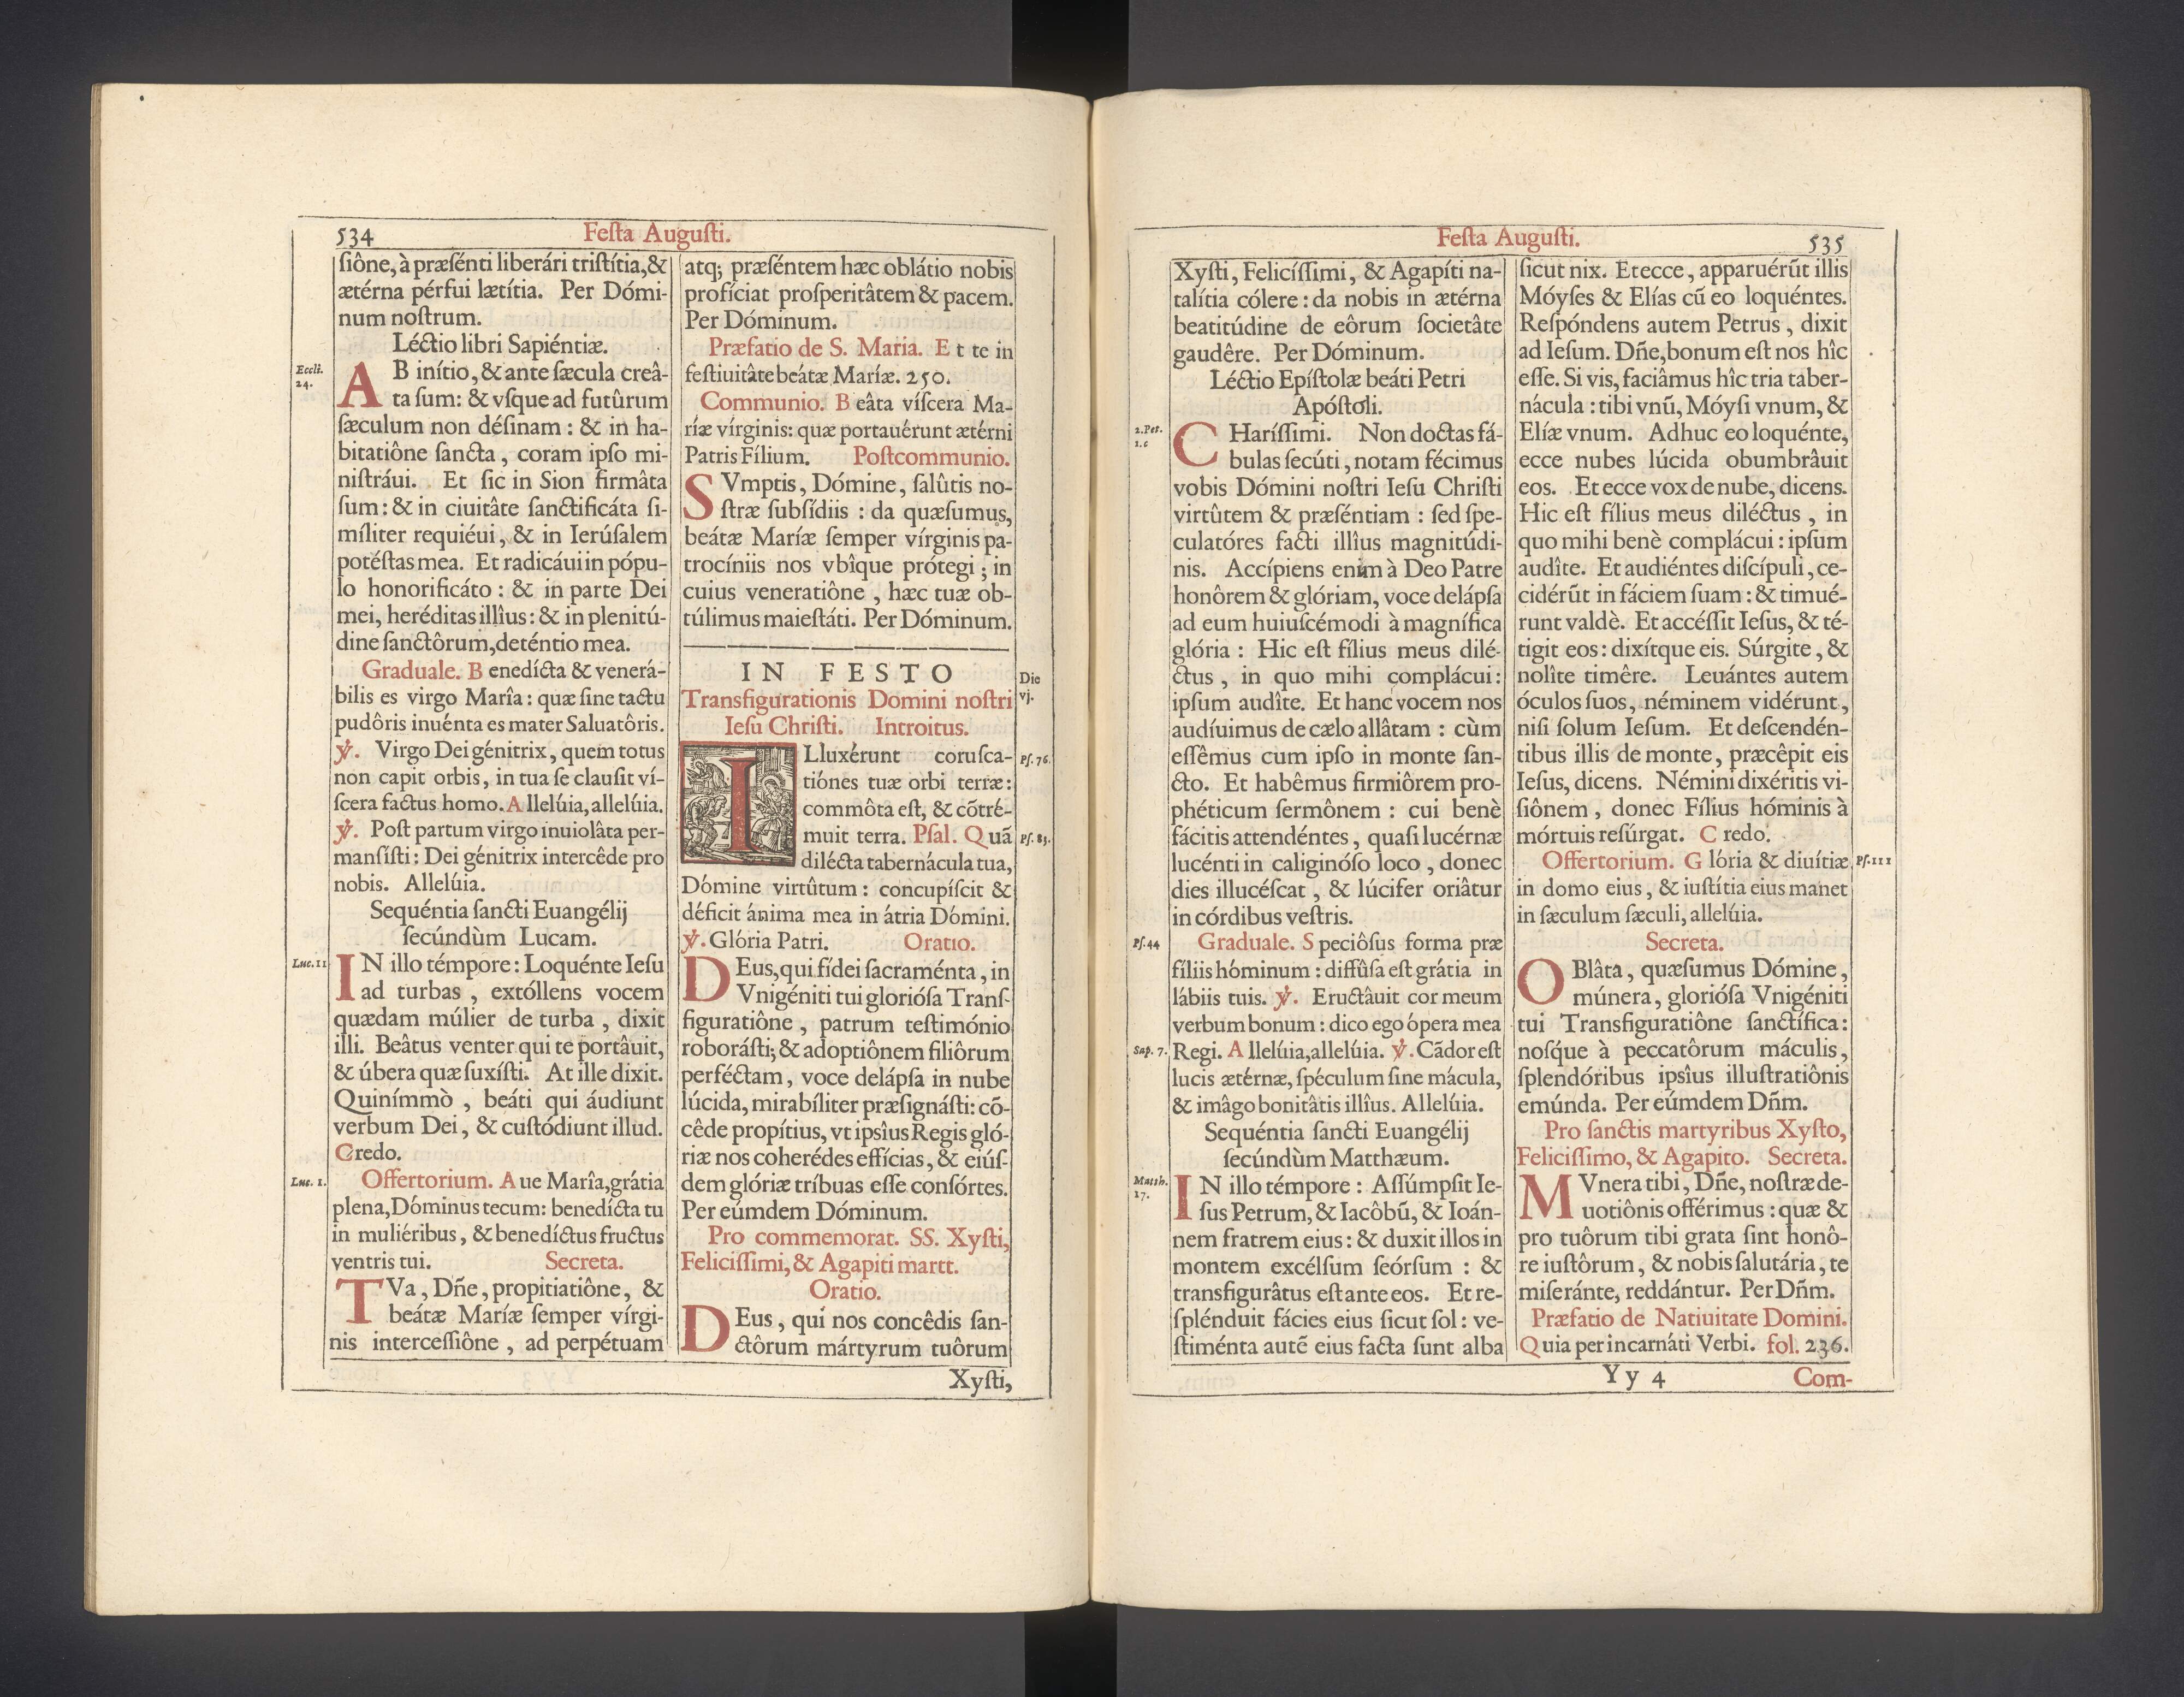 534
Feſta Auguſti.
ſiône, à præſénti liberári triſtítia, &
ætérna pérfui lætítia. Per Dómi-
num noſtrum.
Léctio libri Sapiéntiæ.
Eccli.
24.
AB inítio, & ante ſæcula creâ-
ta ſum: & vſque ad futûrum
ſæculum non déſinam : & in ha-
bitatiône ſáncta , coram ipſo mi-
niſtráui. Et ſic in Sion firmâta
ſum: & in ciuitâte ſanctificáta ſi-
míliter requiéui, & in Ierúſalem
potéſtas mea. Et radicáui in pópu-
lo honorificáto : & in parte Dei
mei, heréditas illîus: & in plenitú-
dine ſanctôrum, deténtio mea.
Graduale. B enedícta & venerá-
bilis es virgo Marîa : quæ ſine tactu
pudôris inuénta es mater Saluatôris.
℣. Virgo Dei génitrix, quem totus
non capit orbis, in tua ſe clauſit ví-
ſcera factus homo. A llelúia, allelúia.
℣. Poſt partum virgo inuiolâta per-
manſíſti : Dei génitrix intercêde pro
nobis. Allelúia.
Sequéntia ſancti Euangélij
ſecúndùm Lucam.
Luc. 11
IN illo témpore : Loquénte Ieſu
ad turbas , extóllens vocem
quædam múlier de turba , dixit
illi. Beâtus venter qui te portâuit,
& úbera quæ ſuxíſti. At ille dixit.
Quinímmò , beáti qui áudiunt
verbum Dei, & cuſtódiunt illud.
Credo.
Luc. 1.
Offertorium. A ue Marîa, grátia
plena, Dóminus tecum: benedícta tu
in muliéribus, & benedíctus fructus
ventris tui. Secreta.
TVa, Dñe, propitiatiône, &
beátæ Maríæ ſemper vírgi-
nis interceſſiône , ad perpétuam
atq; præſéntem hæc oblátio nobis
profíciat proſperitâtem & pacem.
Per Dóminum.
Præfatio de S. Maria. E t te in
feſtiuitâte beátæ Maríæ. 250.
Communio. B eâta víſcera Ma-
ríæ vírginis: quæ portauérunt ætérni
Patris Fílium. Poſtcommunio.
SVmptis, Dómine, ſalûtis no-
ſtræ ſubſídiis : da quæſumus,
beátæ Maríæ ſemper vírginis pa-
trocíniis nos vbîque prótegi ; in
cuius veneratiône , hæc tuæ ob-
túlimus maieſtáti. Per Dóminum.
IN FESTO
Die
vj.
Transfigurationis Domini noſtri
Ieſu Chriſti. Introitus.
ILluxérunt coruſca-
Pſ. 76.
tiónes tuæ orbi terræ:
commôta eſt, & cõtré-
muit terra. Pſal. Q uã
Pſ. 83.
dilécta tabernácula tua,
Dómine virtûtum : concupíſcit &
déficit ánima mea in átria Dómini.
℣. Glória Patri. Oratio.
DEus, qui fídei ſacraménta, in
Vnigéniti tui glorióſa Tranſ-
figuratiône , patrum teſtimónio
roboráſti; & adoptiônem filiôrum
perféctam, voce delápſa in nube
lúcida, mirabíliter præſignáſti: cõ-
cêde propítius, vt ipsîus Regis gló-
riæ nos coherédes effícias, & eiúſ-
dem glóriæ tríbuas eſſe conſórtes.
Per eúmdem Dóminum.
Pro commemorat. SS. Xyſti,
Feliciſſimi, & Agapiti martt.
Oratio.
DEus, qui nos concêdis ſan-
ctôrum mártyrum tuôrum
Xyſti,
Feſta Auguſti.
535
Xyſti, Felicíſſimi, & Agapíti na-
talítia cólere : da nobis in ætérna
beatitúdine de eôrum ſocietâte
gaudêre. Per Dóminum.
Léctio Epíſtolæ beáti Petri
Apóſtoli.
2. Pet.
1. c
CHaríſſimi. Non doctas fá-
bulas ſecúti, notam fécimus
vobis Dómini noſtri Ieſu Chriſti
virtûtem & præſéntiam : ſed ſpe-
culatóres facti illîus magnitúdi-
nis. Accípiens enim à Deo Patre
honôrem & glóriam, voce delápſa
ad eum huiuſcémodi à magnífica
glória : Hic eſt fílius meus dilé-
ctus , in quo mihi complácui:
ipſum audîte. Et hanc vocem nos
audíuimus de cælo allâtam : cùm
eſſêmus cum ipſo in monte ſan-
cto. Et habêmus firmiôrem pro-
phéticum ſermônem : cui benè
fácitis attendéntes, quaſi lucérnæ
lucénti in caliginóſo loco , donec
dies illucéſcat , & lúcifer oriâtur
in córdibus veſtris.
Pſ. 44
Graduale. S peciôſus forma præ
fíliis hóminum : diffûſa eſt grátia in
lábiis tuis. ℣. Eructâuit cor meum
verbum bonum : dico ego ópera mea
Sap. 7.
Regi. A llelúia, allelúia. ℣. Cãdor eſt
lucis ætérnæ, ſpéculum ſine mácula,
& imâgo bonitâtis illîus. Allelúia.
Sequéntia ſancti Euangélij
ſecúndùm Matthæum.
Matth.
17.
IN illo témpore : Aſſúmpſit Ie-
ſus Petrum, & Iacôbũ, & Ioán-
nem fratrem eius: & duxit illos in
montem excélſum ſeórſum : &
transfigurâtus eſt ante eos. Et re-
ſplénduit fácies eius ſicut ſol : ve-
ſtiménta autẽ eius facta ſunt alba
ſicut nix. Et ecce, apparuérũt illis
Móyſes & Elías cũ eo loquéntes.
Reſpóndens autem Petrus , dixit
ad Ieſum. Dñe, bonum eſt nos hîc
eſſe. Si vis, faciâmus hîc tria taber-
nácula : tibi vnũ, Móyſi vnum, &
Elíæ vnum. Adhuc eo loquénte,
ecce nubes lúcida obumbrâuit
eos. Et ecce vox de nube, dicens.
Hic eſt fílius meus diléctus , in
quo mihi benè complácui : ipſum
audîte. Et audiéntes diſcípuli, ce-
cidérũt in fáciem ſuam : & timué-
runt valdè. Et accéſſit Ieſus, & té-
tigit eos : dixítque eis. Súrgite , &
nolîte timêre. Leuántes autem
óculos ſuos, néminem vidérunt,
niſi ſolum Ieſum. Et deſcendén-
tibus illis de monte, præcêpit eis
Ieſus, dicens. Némini dixéritis vi-
ſiônem , donec Fílius hóminis à
mórtuis reſúrgat. C redo.
Offertorium. G lória & diuítiæ
Pſ. 111
in domo eius, & iuſtítia eius manet
in ſæculum ſæculi, allelúia.
Secreta.
OBlâta, quæſumus Dómine,
múnera, glorióſa Vnigéniti
tui Transfiguratiône ſanctífica:
noſq́ue à peccatôrum máculis,
ſplendóribus ipsîus illuſtratiônis
emúnda. Per eúmdem Dñm.
Pro ſanctis martyribus Xyſto,
Feliciſſimo, & Agapito. Secreta.
MVnera tibi, Dñe, noſtræ de-
uotiônis offérimus : quæ &
pro tuôrum tibi grata ſint honô-
re iuſtôrum, & nobis ſalutária, te
miſeránte, reddántur. Per Dñm.
Præfatio de Natiuitate Domini.
Quia per incarnáti Verbi. fol. 236.
Yy 4
Com-